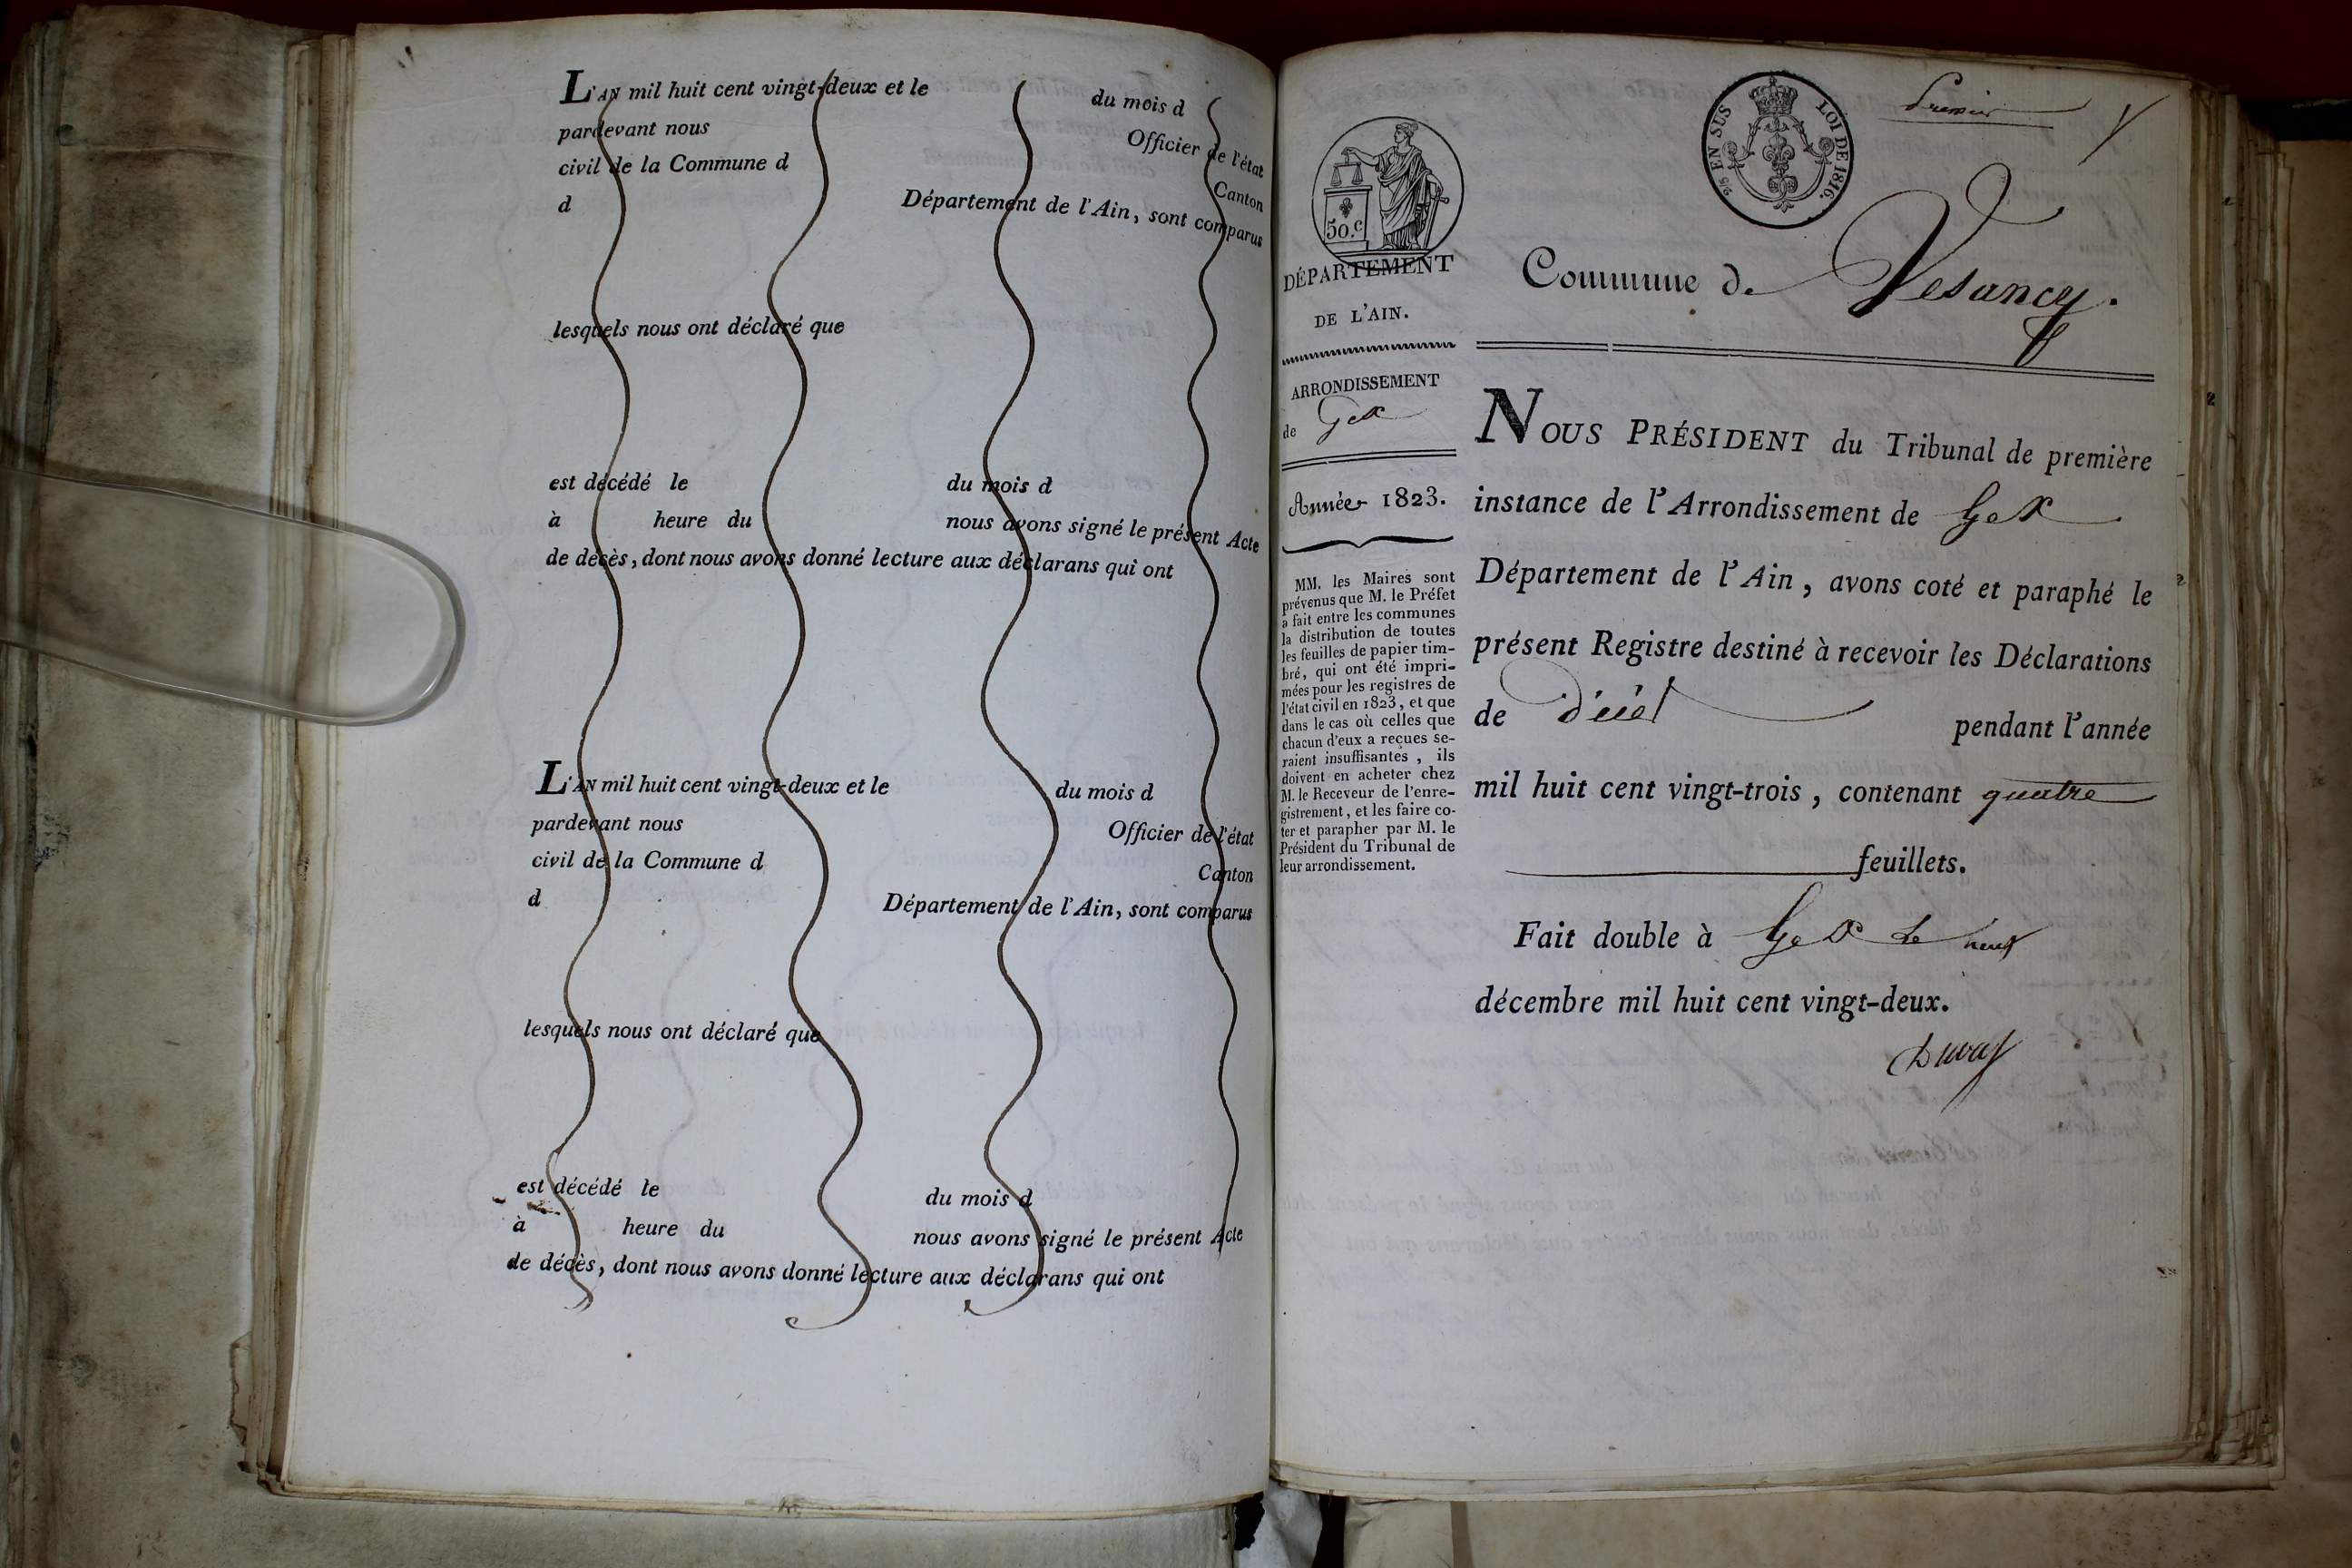 L'AN mil huit cent vingt-deux et le du mois d
pardevant nous Officier de l'état
civil de la Commune d Canton
d Département de l'Ain, sont comparus
lesquels nous ont déclaré que
est décédé le du mois d
à heure du nous avons signé le présent Acte
de décès, dont nous avons donné lecture aux déclarans qui ont
L'AN mil huit cent vingt-deux et le du mois d
pardevant nous Officier de l'état
civil de la Commune d Canton
d Département de l'Ain, sont comparus
lesquels nous ont déclaré que
est décédé le du mois d
à heure du nous avons signé le présent Acte
de décès, dont nous avons donné lecture aux déclarans qui ont
50.c
DÉPARTEMENT
DE L'AIN.
ARRONDISSEMENT
de Gex
Année 1823.
MM. les Maires sont
prévenus que M. le Préfet
a fait entre les communes
la distribution de toutes
les feuilles de papier tim-
bré, qui ont été impri-
mées pour les registres de
l'état civil en 1823, et que
dans le cas où celles que
chacun d'eux a reçues se-
raient insuffisantes, ils
doivent en acheter chez
M. le Receveur de l'enre-
gistrement, et les faire co-
ter et parapher par M. le
Président du Tribunal de
leur arrondissement.
2/5 EN SUS LOI DE 1816.
Premier
Commune de Vesancy.
NOUS PRÉSIDENT du Tribunal de première
instance de l'Arrondissement de Gex
Département de l'Ain, avons coté et paraphé le
présent Registre destiné à recevoir les Déclarations
de décès pendant l'année
mil huit cent vingt-trois, contenant quatre
feuillets.
Fait double à Gex le neuf
décembre mil huit cent vingt-deux.